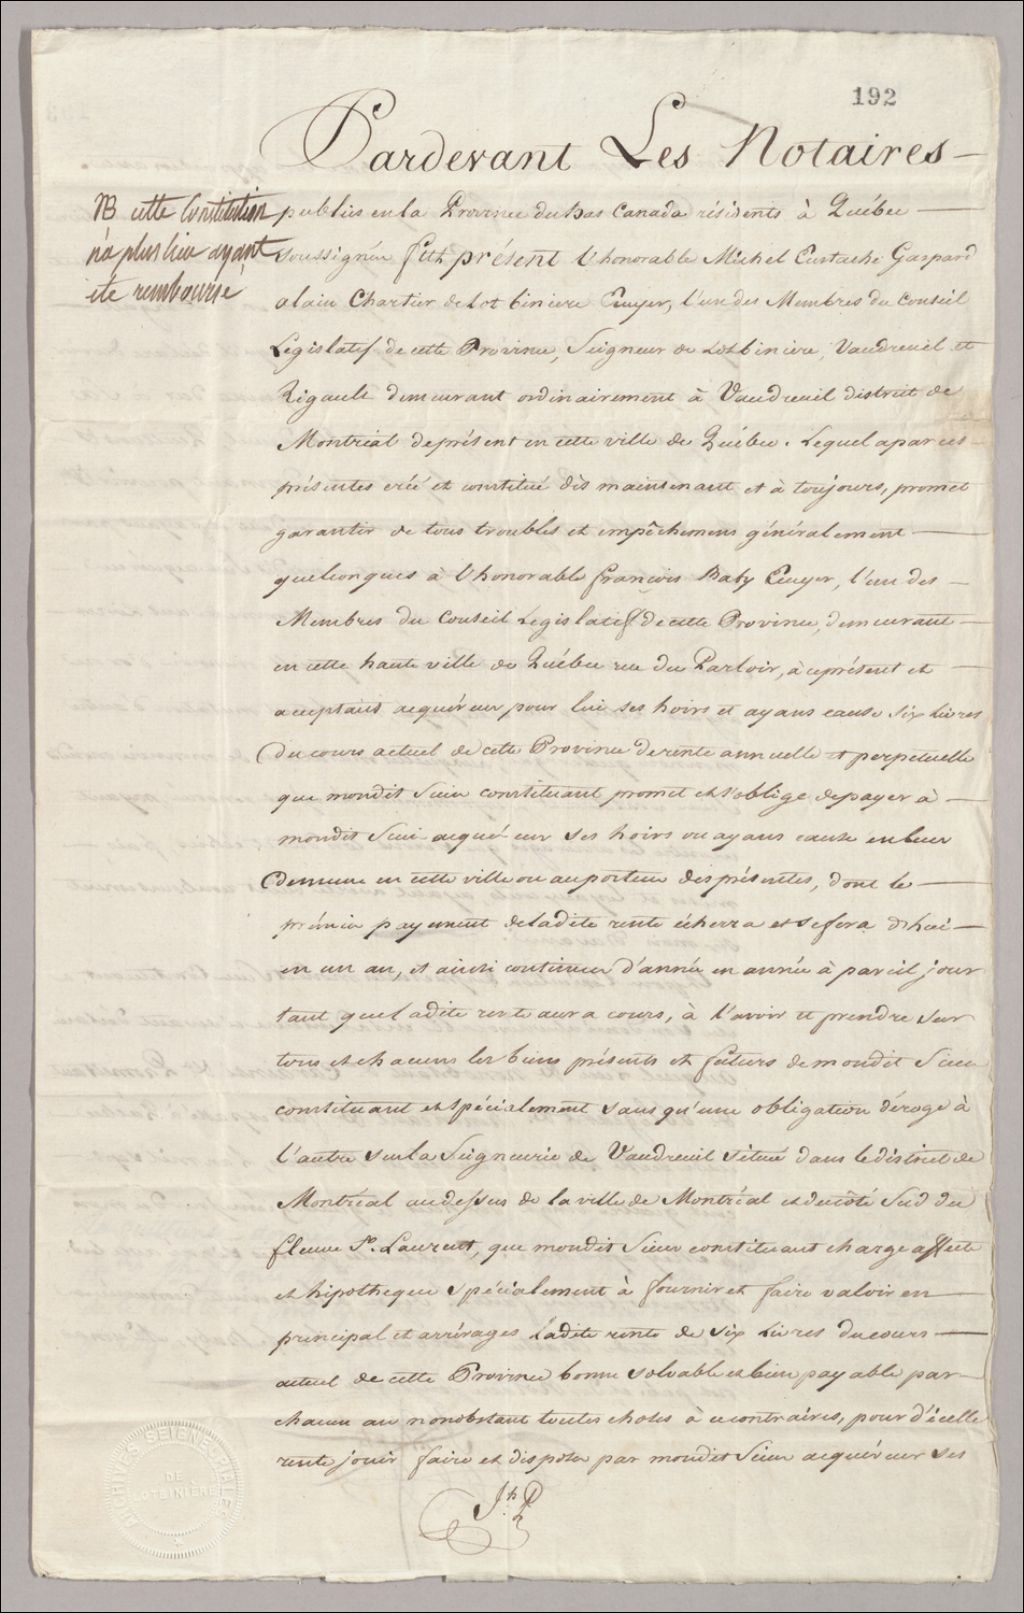 192
Pardevant Les Notaires
NB cette Constitution
n'a plus lieu ayant
ete remboursé
publics en la Province du bas Canada résidents à Québec
soussignés fût présent l'honorable Michel Eustache Gaspard
alain Chartier de Lotbiniere Ecuyer, l'un des Membres du Conseil
Législatif de cette Province, Seigneur de Lotbiniere, Vaudreuil et
Rigault demeurant ordinairement à Vaudreuil district de
Montréal de présent en cette ville de Québec. Lequel a par ces
présentes créé et constitué dès maintenant et à toujours, promet
garantir de tous troubles et empêchemens généralement
quelconques à l'honorable françois Baby Ecuyer, l'un des
Membres du Conseil Legislatif de cette Province, demeurant
en cette haute ville de Québec rue du Parloir, à ce présent et
acceptant acquéreur pour lui ses hoirs et ayans cause Six Livres
du cours actuel de cette Province de rente annuelle et perpetuelle
que mondit Sieur constituant promet et s'oblige de payer à
mondit Sieur acquéreur ses hoirs ou ayans cause en leur
demeure en cette ville ou au porteur des présentes, dont le
prémier payement de ladite rente écherra et se fera d'hui
en un an, et ainsi continuer d'année en année à pareil jour
tant que ladite rente aura cours, à l'avoir et prendre sur
tous et chacuns les biens présents et futurs de mondit Sieur
constituant et spécialement sans qu'une obligation déroge à
l'autre sur la Seigneurie de Vaudreuil située dans le district de
Montréal au dessus de la ville de Montréal et du côté Sud du
fleuve St. Laurent, que mondit Sieur constituant charge affecte
et hipotheque spécialement à fournir et faire valoir en
principal et arrérages ladite rente de six Livres du cours
actuel de cette Province bonne solvable et bien payable par
chacun an nonobstant toutes choses à ce contraires, pour d'icelle
rente jouir faire et disposer par mondit Sieur acquéreur ses
ARCHIVES SEIGNEURIALES
DE
LOTBINIERE